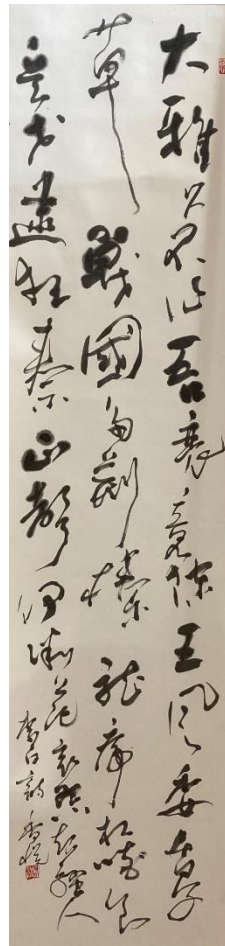 大雅久不作吾衰竟誰陳王風委蔓
草戰國多荊榛龍虎相啖食
兵戈逮狂秦正聲何微茫哀怨起騷人
李白詩